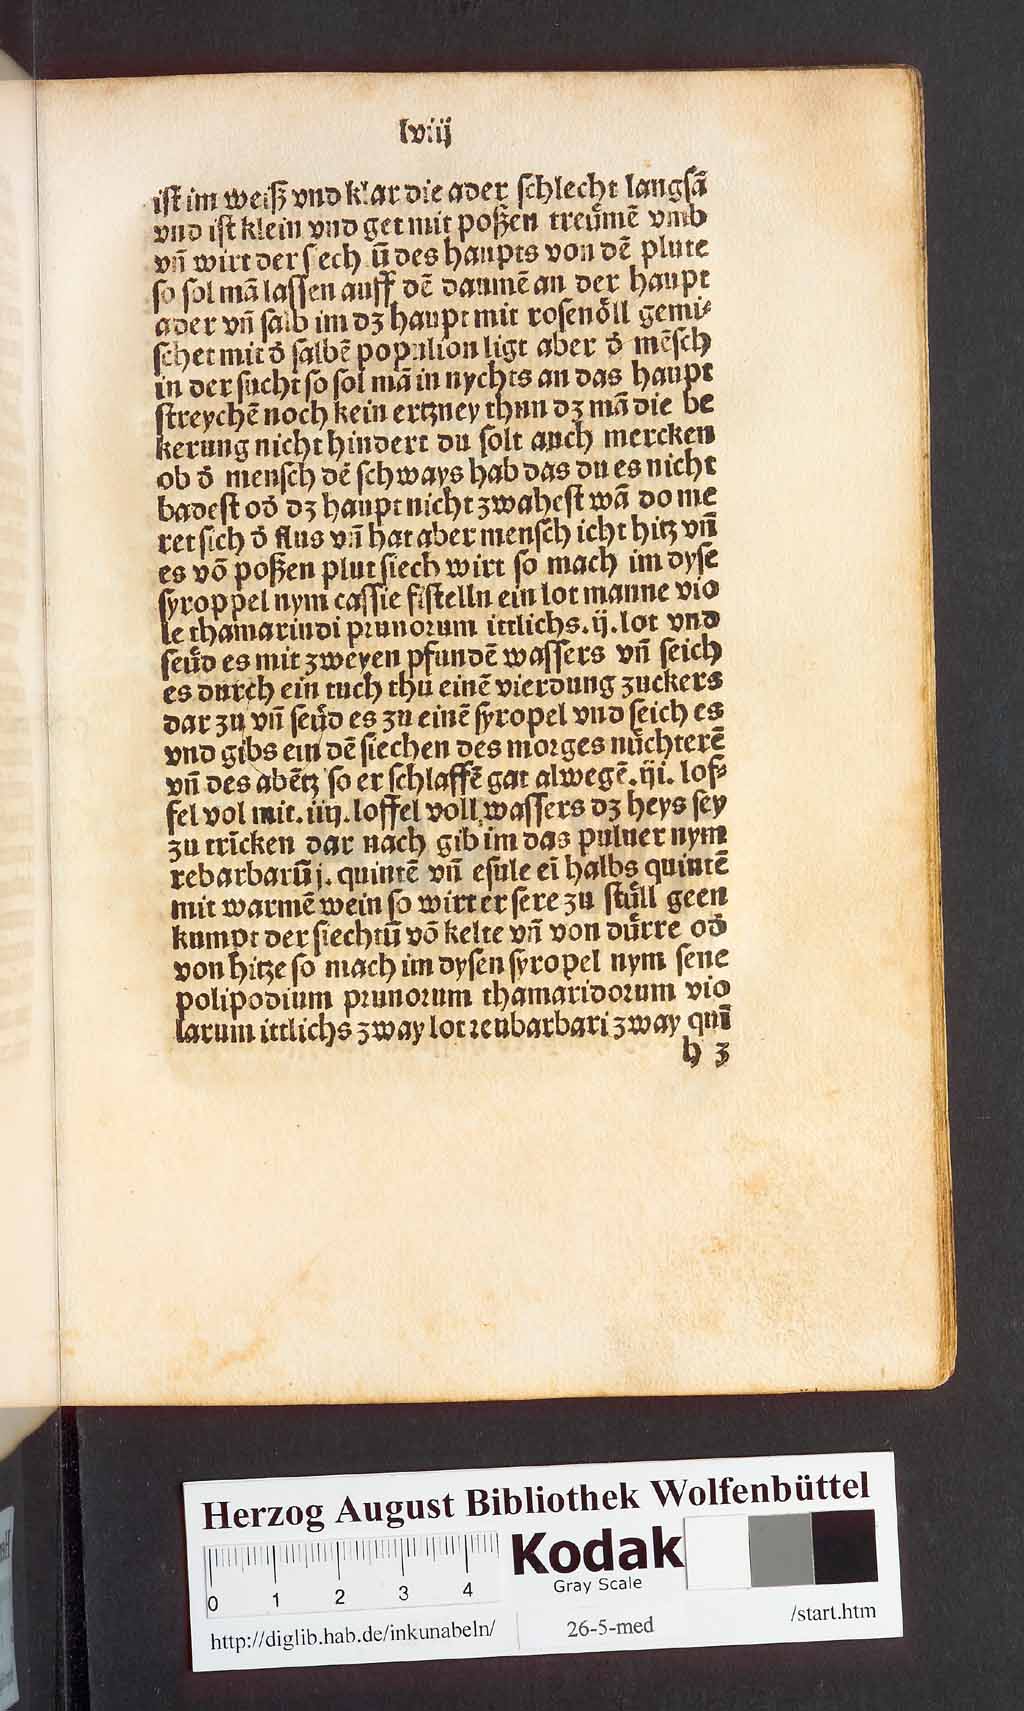 lviij
ist im weiß vnd klar die ader schlecht langsã
vnd ist klein vnd get mit poßen treümẽ vmb
vñ wirt der sech ũ des haupts von dẽ plute
so sol mã lassen auff dẽ daumẽ an der haupt
ader vñ salb im dʒ haupt mit rosenöll gemi⸗
schet mit d̕ salbẽ populion ligt aber d̕ mẽsch
in der sucht so sol mã in nychts an das haupt
streychẽ noch kein ertzney thun dʒ mã die be
kerung nicht hindert du solt auch mercken
ob d̕ mensch dẽ schways hab das du es nicht
badest od̕ dʒ haupt nicht zwahest wã do me
ret sich d̕ flus vñ hat aber mensch icht hitz vñ
es võ poßen plut siech wirt so mach im dyse
syroppel nym cassie fistelln ein lot manne vio
le thamarindi prunorum ittlichs .ij. lot vnd
seüd es mit zweyen pfundẽ wassers vñ seich
es durch ein tuch thu einẽ vierdung zuckers
dar zu vñ seüd es zu einẽ syropel vnd seich es
vnd gibs ein dẽ siechen des morges nüchterẽ
vñ des abẽtz so er schlaffẽ gat alwegẽ .iji. lof⸗
fel vol mit .iiij. loffel voll wassers dʒ heys sey
zu trĩcken dar nach gib im das puluer nym
rebarbarũ j. quintẽ vñ esule eĩ halbs quintẽ
mit warmẽ wein so wirt er sere zu stüll geen
kumpt der siechtũ võ kelte vñ von dürre od̕
von hitze so mach im dysen syropel nym sene
polipodium prunorum thamaridorum vio
larum ittlichs zway lot reubarbari zway quĩ
h 3
Herzog August Bibliothek Wolfenbüttel
0 1 2 3 4
Kodak
Gray Scale
http://diglib.hab.de/inkunabeln/ 26-5-med /start.htm